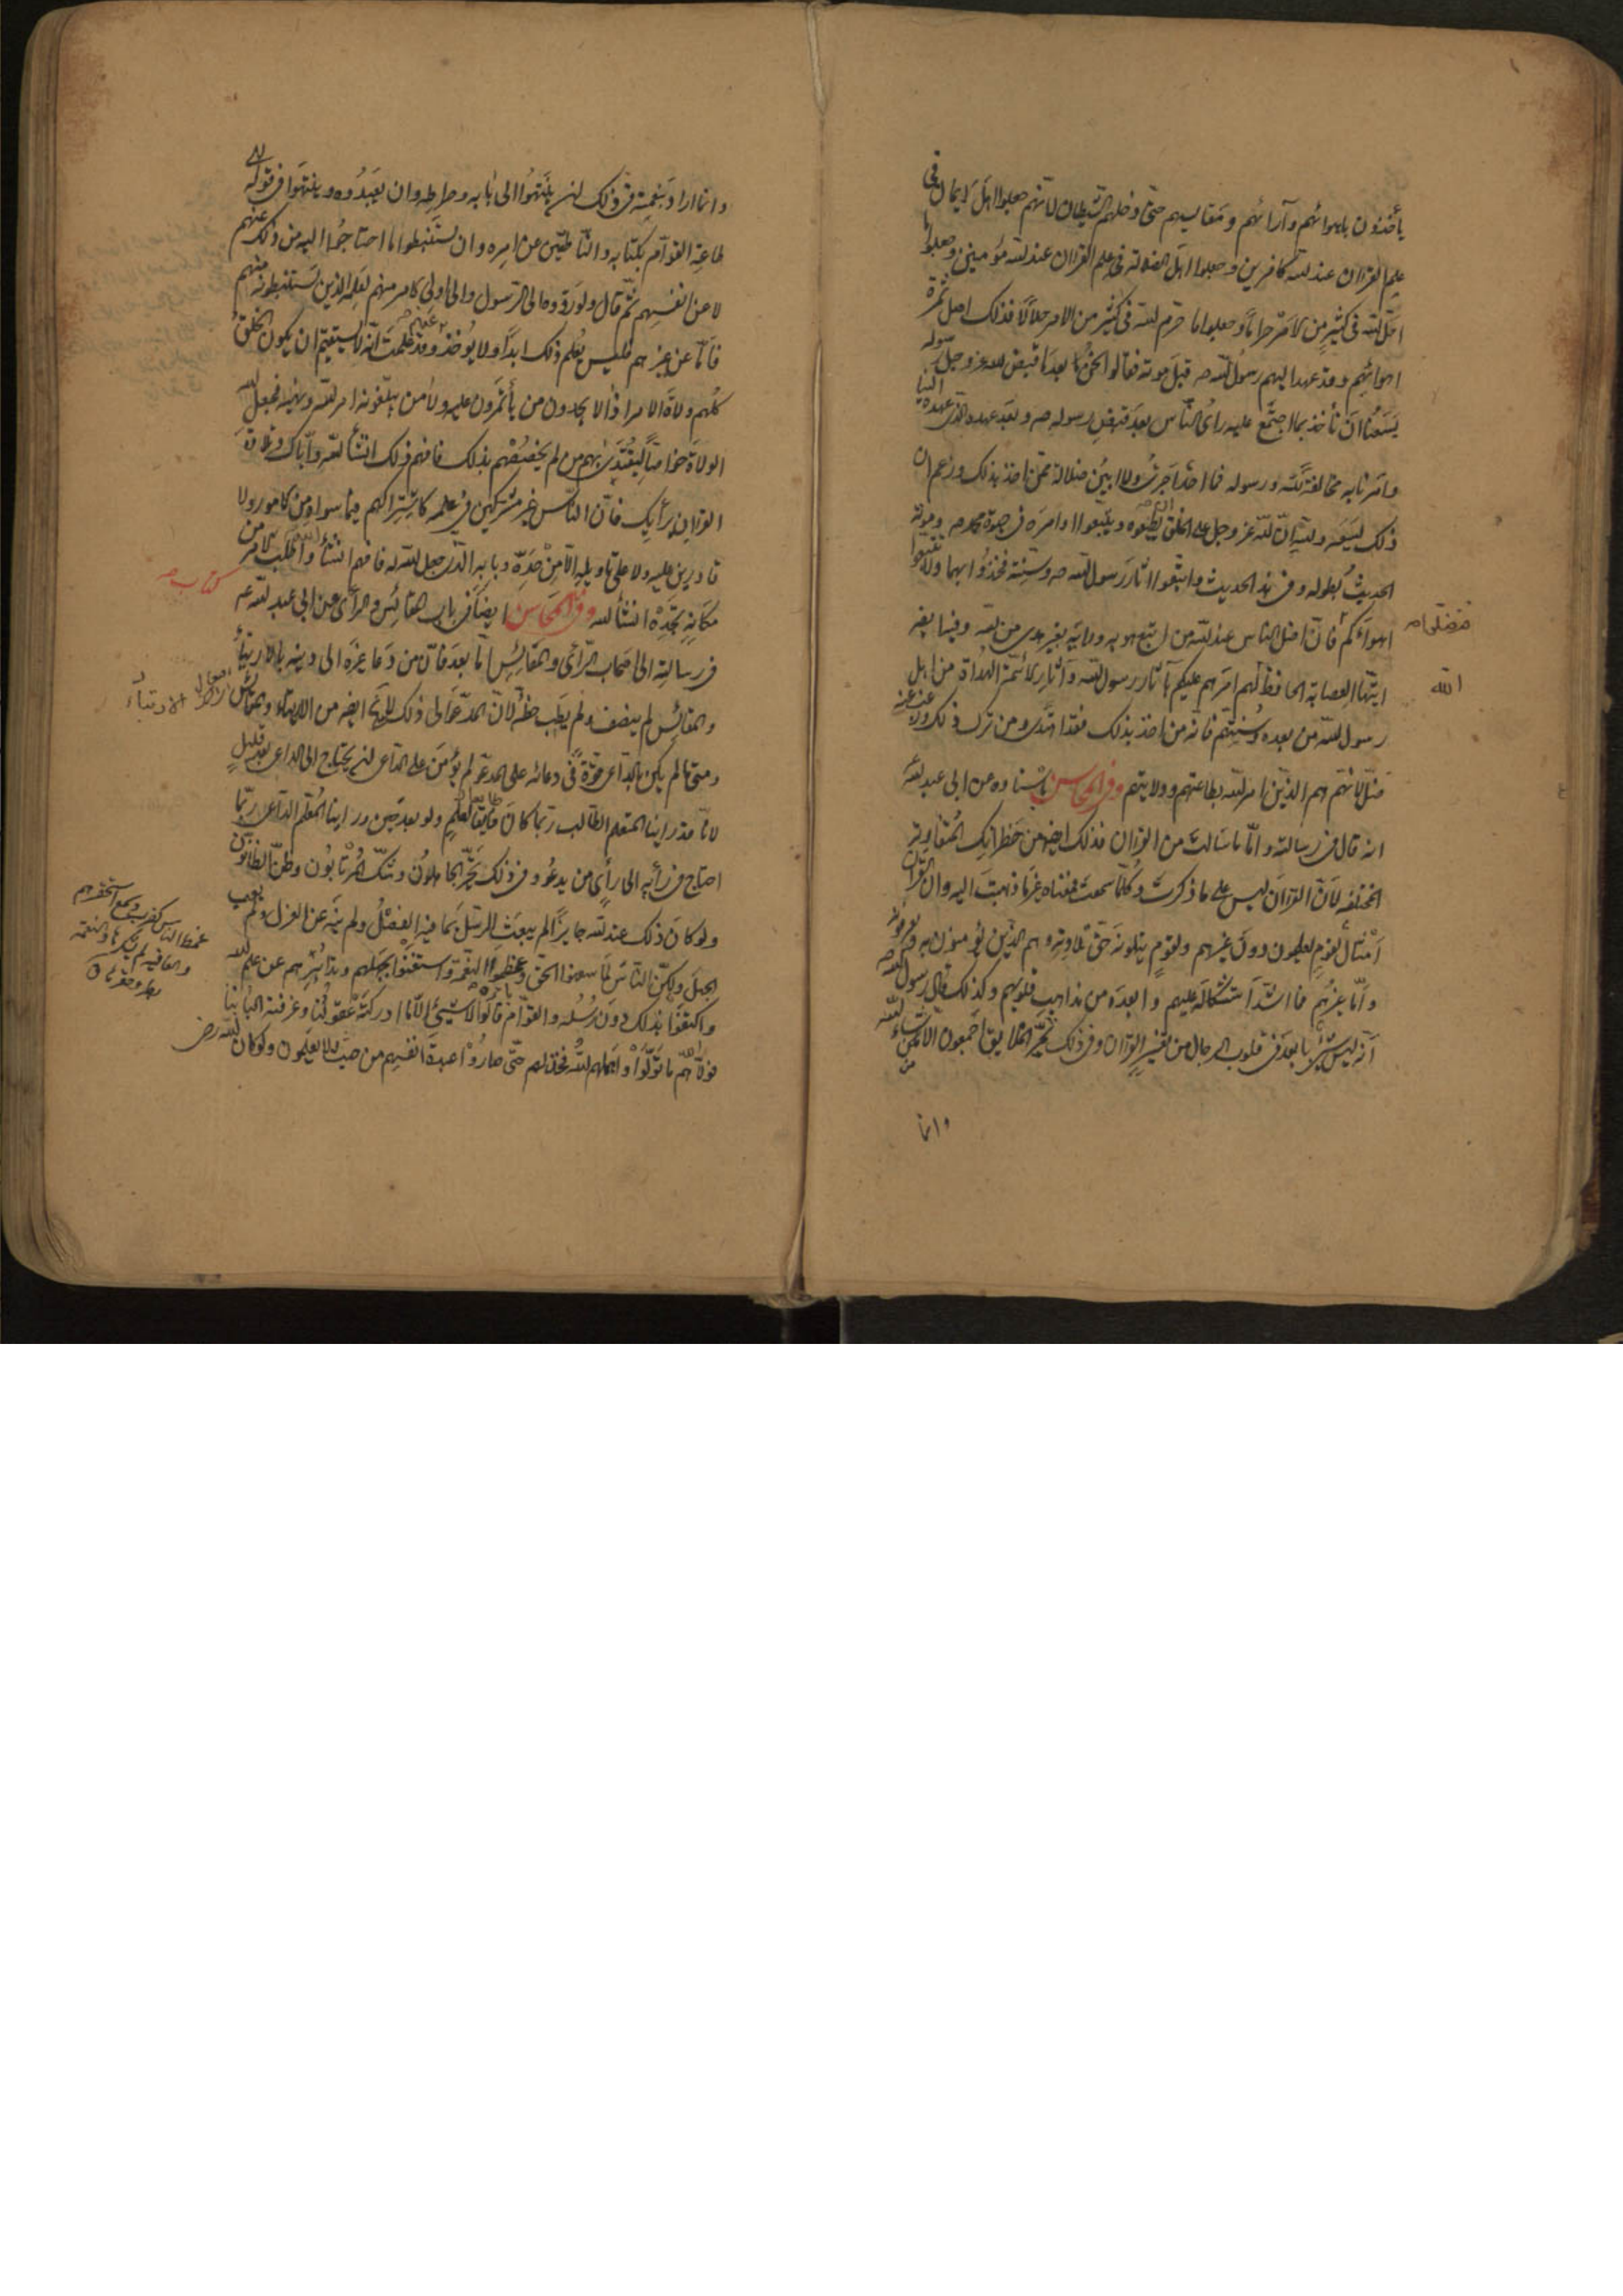 يأخذون باهوائهم وآرائهم ومقاييسهم حتى دخلهم الشيطان لانهم جعلوا اهل الايمان في
علم القران عند الله كافرين وجعلوا اهل الضلالة في علم القران عند الله مؤمنين وجعلوا ما
احل الله في كثير من الامر حراما وجعلوا ما حرم الله في كثير من الامر حلالا فذلك اصل ثمرة
اهوائهم وقد عهد اليهم رسول الله ص قبل موته فقالوا نحن بعد ما قبض الله عز وجل رسوله
يسعنا ان نأخذ بما اجتمع عليه رأى الناس بعد قبض رسوله ص وبعد عهده الذي عهده الينا
وامرنا به مخالفة لله ورسوله فما احد اجرى ولا ابين ضلالة ممن اخذ بذلك وزعم ان
ذلك يسعه ولله ان لله عز وجل على الخلق ان يطيعوه ويتبعوا امره في حيوة محمد ص وموته
الحديث بطوله وفي هذا الحديث واتبعوا اثار رسول الله ص وسنته فخذوا بها ولا تتبعوا
اهواءكم فان اضل الناس عند الله من اتبع هويه ورايه بغير هدى من الله وفيه ايضا
ايتها العصابة الحافظ لهم امرهم عليكم بآثار رسول الله وآثار الائمة الهداة من اهل
الله
رسول الله من بعده وسنتهم فانه من اخذ بذلك فقد اهتدى ومن ترك ذلك ورغب عنه
ضل لانهم هم الذين امر الله بطاعتهم وولايتهم وفي المحاسن باسناده عن ابي عبد الله
انه قال في رسالة واما ما سالت من القران فذلك ايضا من خطراتك المتفاوتة
المختلفة لان القران ليس على ما ذكرت وكلما سمعت فمعناه غير ما ذهبت اليه وانما القران
امثال لقوم يعلمون دون غيرهم ولقوم يتلونه حق تلاوته وهم الذين يؤمنون به ويعرفونه
واما غيرهم فما اشد استشكاله عليهم وابعده من مذاهب قلوبهم وكذلك قال رسول الله ص
انه ليس شئ بابعد في قلوب الرجال من تفسير القران وفي ذلك تحير الخلايق اجمعون الا من شاء الله
وانما
وانما اراد بتعميته في ذلك ان ينتهوا الى بابه وصراطه وان يعبدوه وينتهوا في قوله الى
طاعة القوام بكتابه والناطقين عن امره وان يستنبطوا ما احتاجوا اليه من ذلك عنهم
لا عن انفسهم ثم قال ولو ردوه الى الرسول والى اولى الامر منهم لعلمه الذين يستنبطونه منهم
فاما عن غيرهم فليس يعلم ذلك ابدا ولا يوخذ وقد علمت انه لا يستقيم ان يكون الخلق
كلهم ولاة الامر اذا لا يجدون من يأتمرون عليه ولا من يبلغونه امر الله ونهيه فجعل الله
الولاة خواصا ليقتدى بهم من لم يخصصهم بذلك فافهم ذلك انشأ الله واياك وتلاوة
القران برأيك فان الناس غير مشتركين في علمه كاشتراكهم فيما سواه من الامور ولا
قادرين عليه ولا على تاويله الا من حده وبابه الذي جعل الله له فافهم انشأ الله واطلب الامر من
مكانه تجده انشأ الله وفي المحاسن ايضا في باب المقائس والرأى عن ابي عبد الله ع
كتاب ص
في رسالته الى اصحاب الرأى والمقائس اما بعد فان من دعا غيره الى دينه بالارتيأ
والمقائس لم ينصف ولم يصب حظه لان المدعو الى ذلك لا يخ ايضا من الارتياء والمقائس
الارتياء
ومتى ما لم يكن بالداعي قوة في دعائه على المدعو لم يؤمن على الداعي ان يحتاج الى المدعو بعد قليل
لانا قد راينا المتعلم الطالب ربما كان فايقا لمعلم ولو بعد حين وراينا المعلم الداعي ربما
احتاج في رأيه الى رأى من يدعو وفي ذلك تحير الجاهلون وشك المرتابون وظن الظانون
ولو كان ذلك عند الله جايزا لم يبعث الرسل بما فيه الفصل ولم ينه عن الهزل ولم يعب
الجهل ولكن الناس لما سفهوا الحق وغمطوا النعمة واستغنوا بجهلهم وتدابيرهم عن علم الله
واكتفوا بذلك دون رسله والقوام بامره قالوا لا شيئ الا ما ادركته عقولنا وعرفته البابنا
فولاهم الله ما تولوا واهملهم الله فخذلهم حتى صاروا عبدة انفسهم من حيث لا يعلمون ولو كان الله رضى
غمط الناس كضرب وسمع استحقرهم
والعافية لم يشكرها والنعمة
بطر وحقرها ق